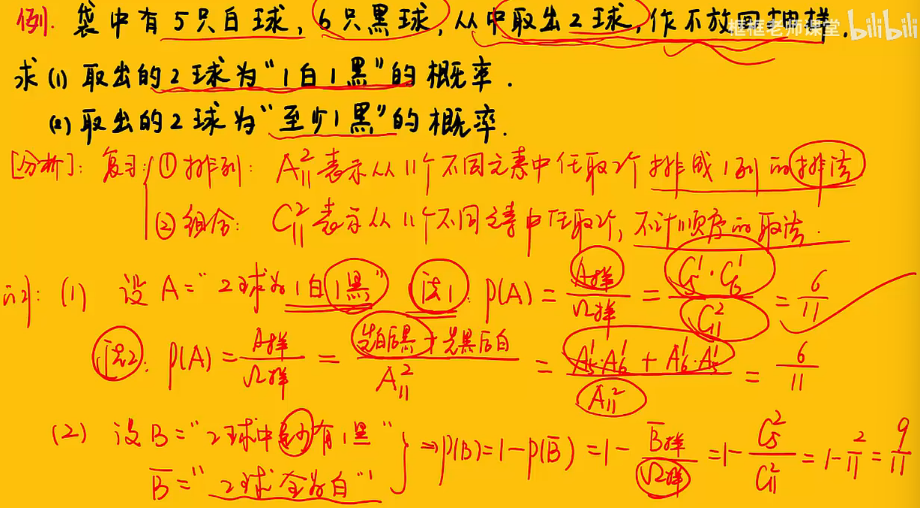 例. 袋中有5只白球, 6只黑球, 从中取出2球, 作不放回抽样.
框框老师课堂 bilibili
求(1) 取出的2球为"1白1黑"的概率.
(2) 取出的2球为"至少1黑"的概率.
[分析]: 复习: ① 排列: A₁₁² 表示从11个不同元素中任取2个排成1列的排法
② 组合: C₁₁² 表示从11个不同元素中任取2个, 不计顺序的取法.
解: (1) 设A="2球为1白1黑" 法1: P(A) = A样/Ω样 = C₅¹·C₆¹/C₁₁² = 6/11
法2: P(A) = A样/Ω样 = 先白后黑+先黑后白/A₁₁² = A₅¹·A₆¹ + A₆¹·A₅¹/A₁₁² = 6/11
(2) 设B="2球中至少有1黑" } ⇒ P(B)=1-P(B̄) = 1- B̄样/Ω样 = 1- C₅²/C₁₁² = 1- 2/11 = 9/11
B̄="2球全为白"